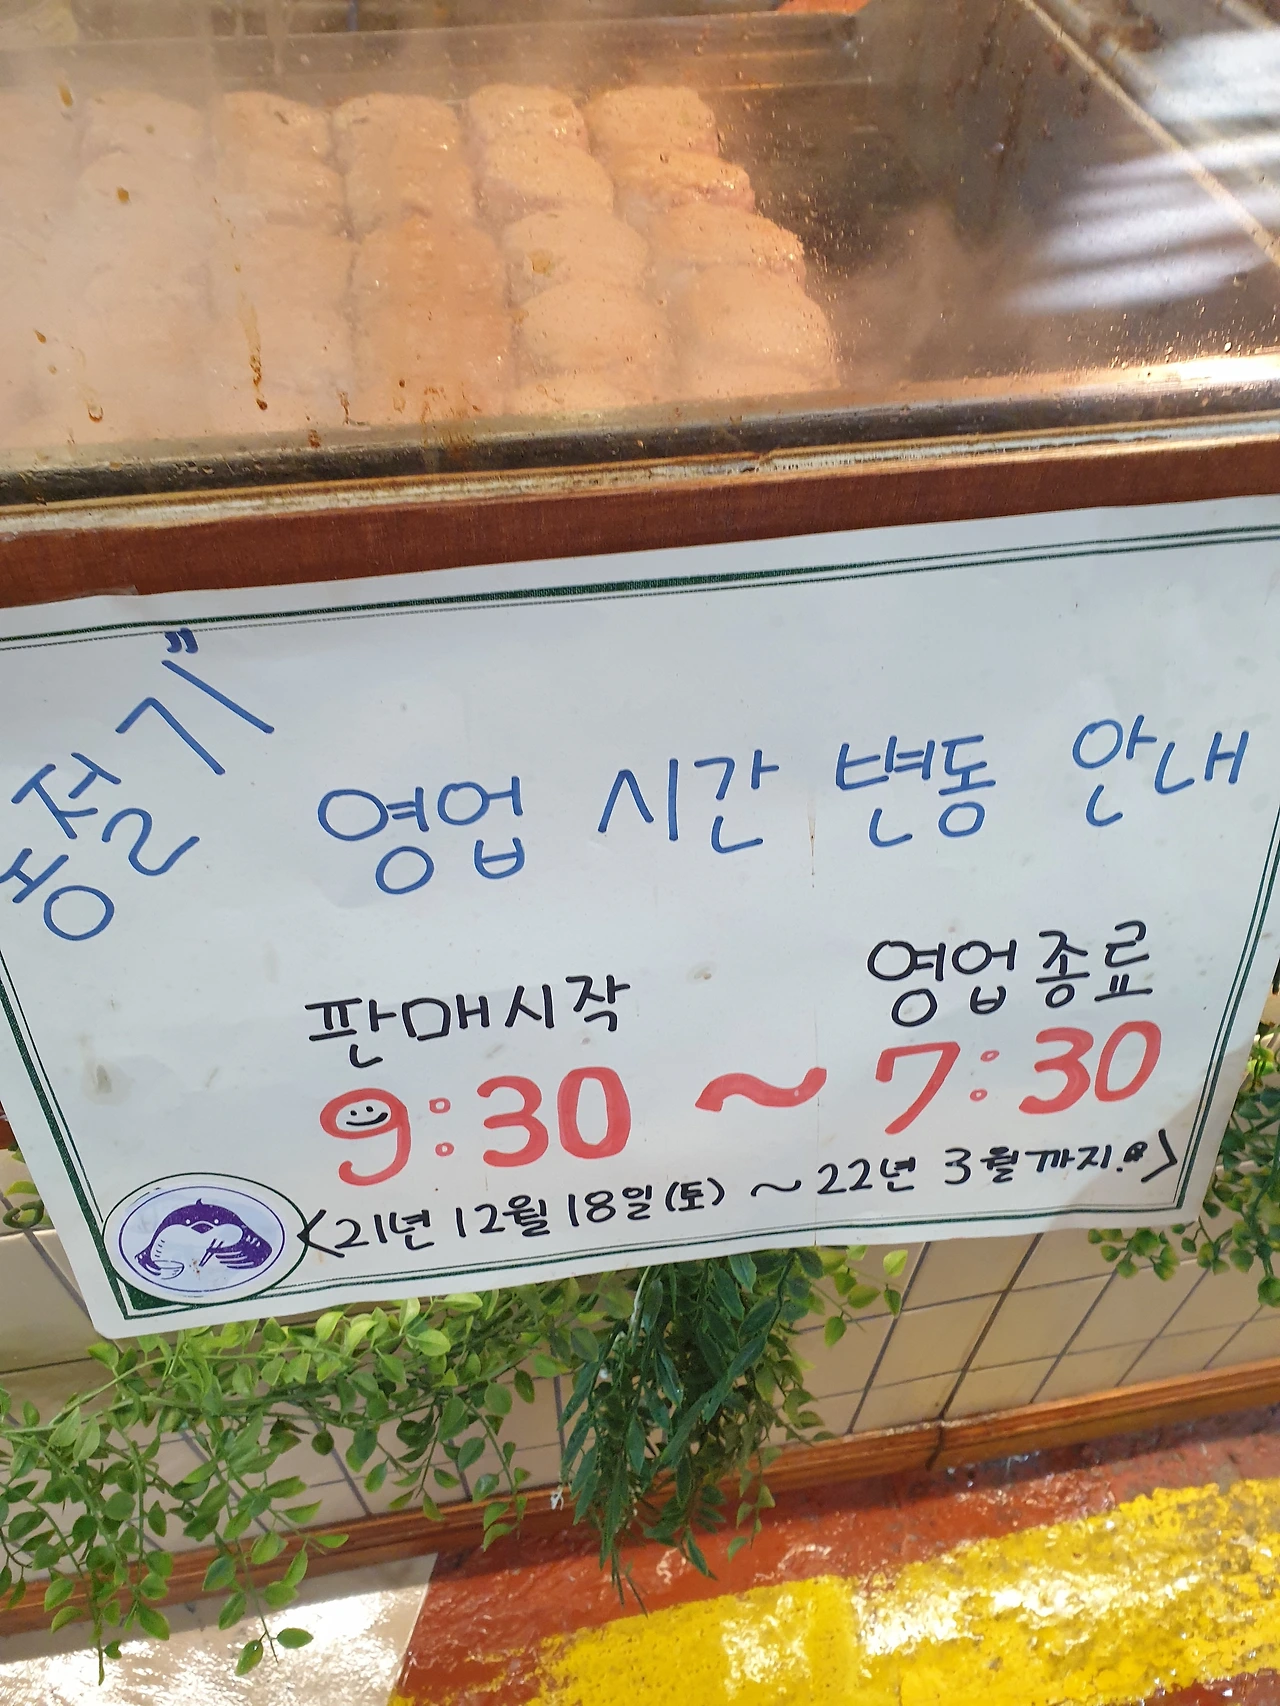 동절기"
영업 시간 변동 안내
판매시작 영업종료
9:30 ~ 7:30
<21년 12월 18일(토) ~ 22년 3월까지.>